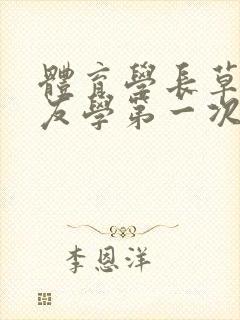 體育學長草
友學第一次
李恩洋